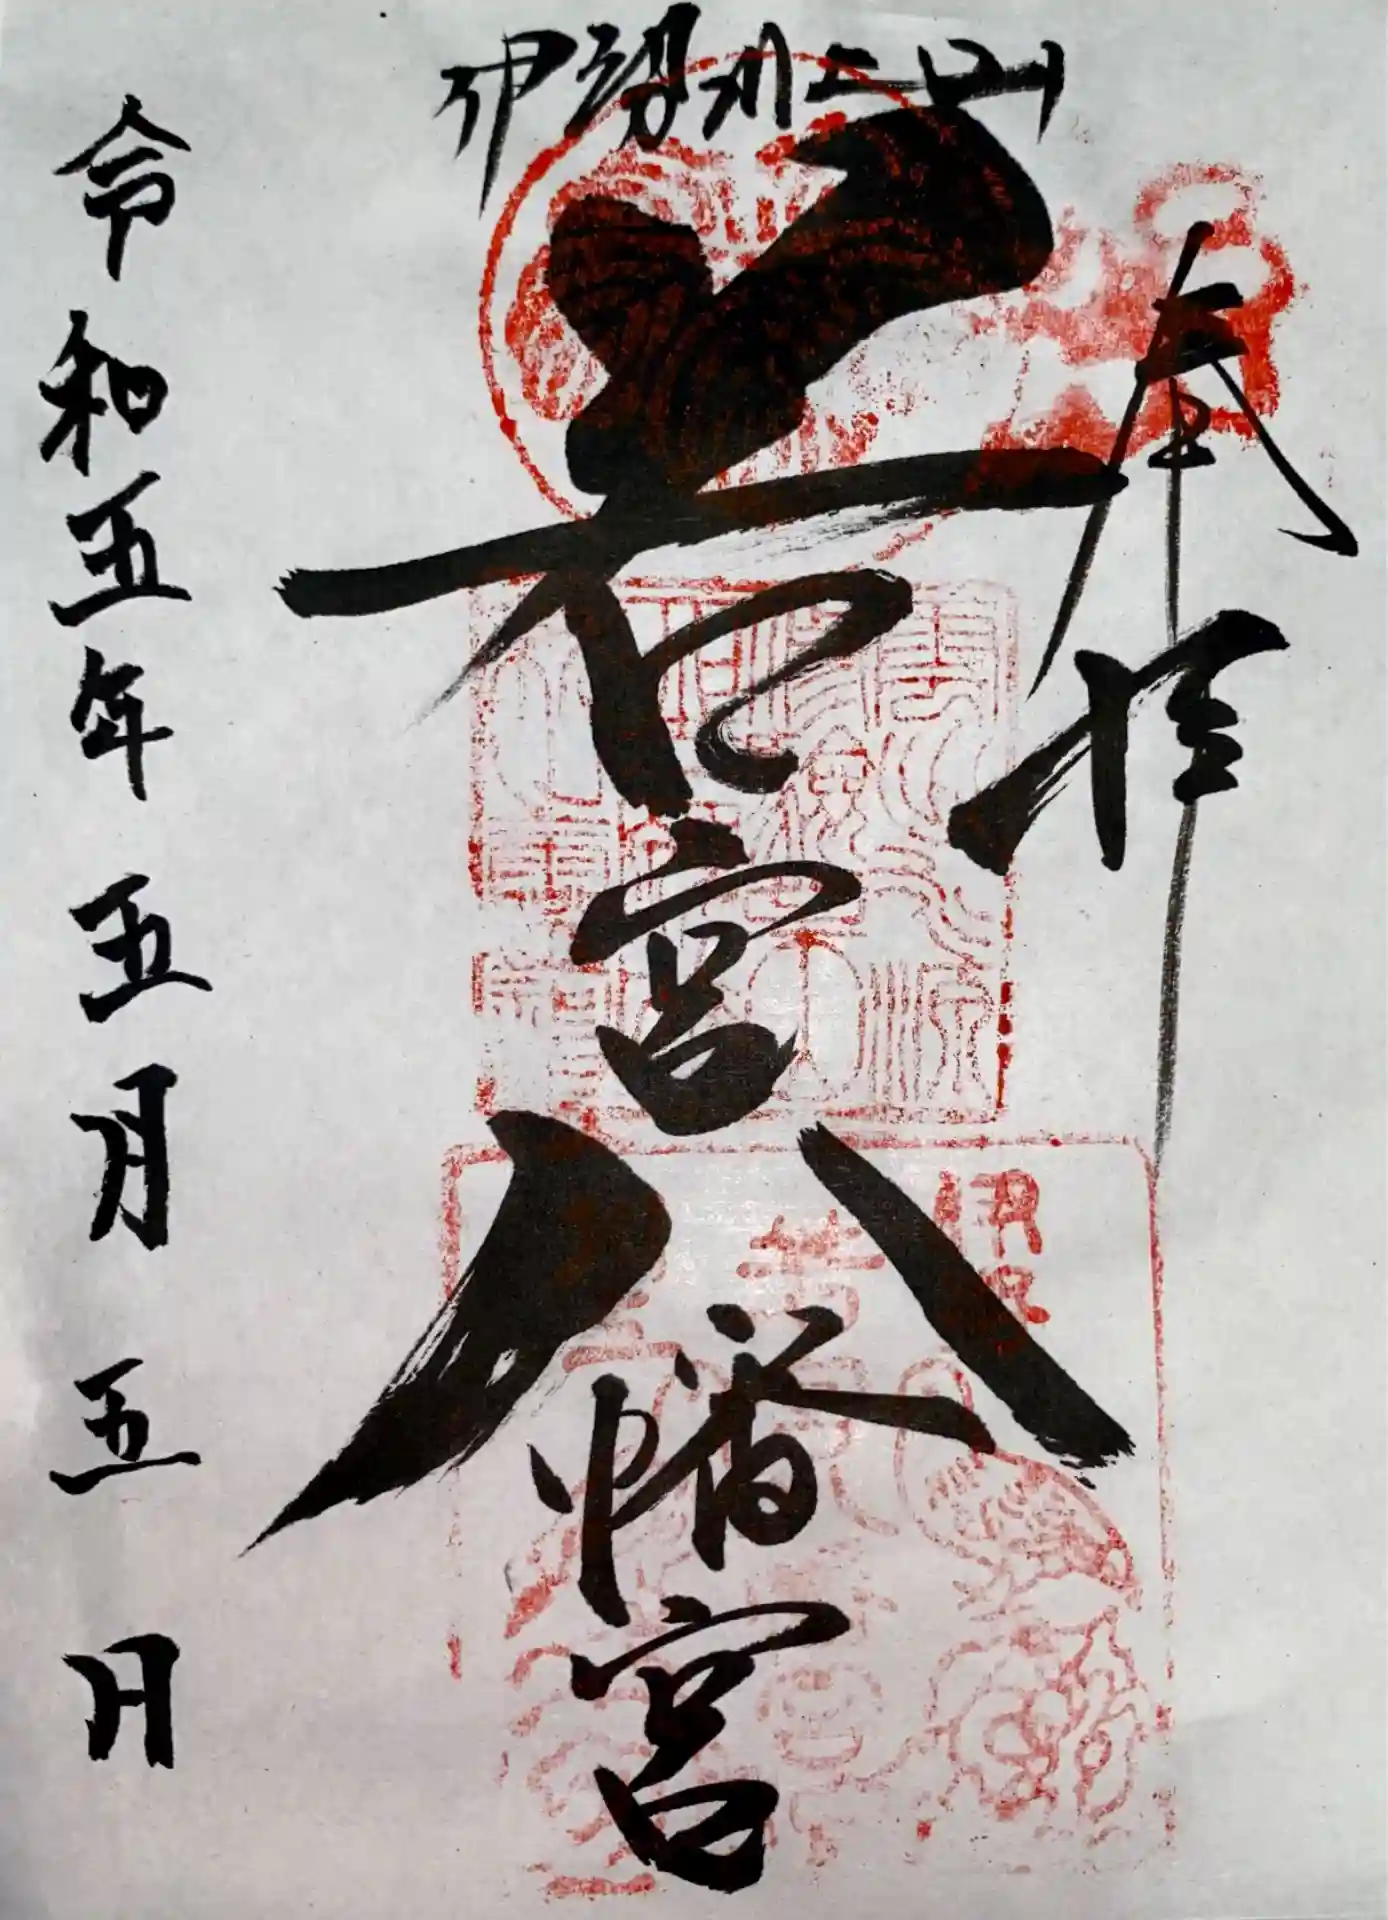 伊勢川上山
奉拝
若宮八幡宮
令和五年五月五日